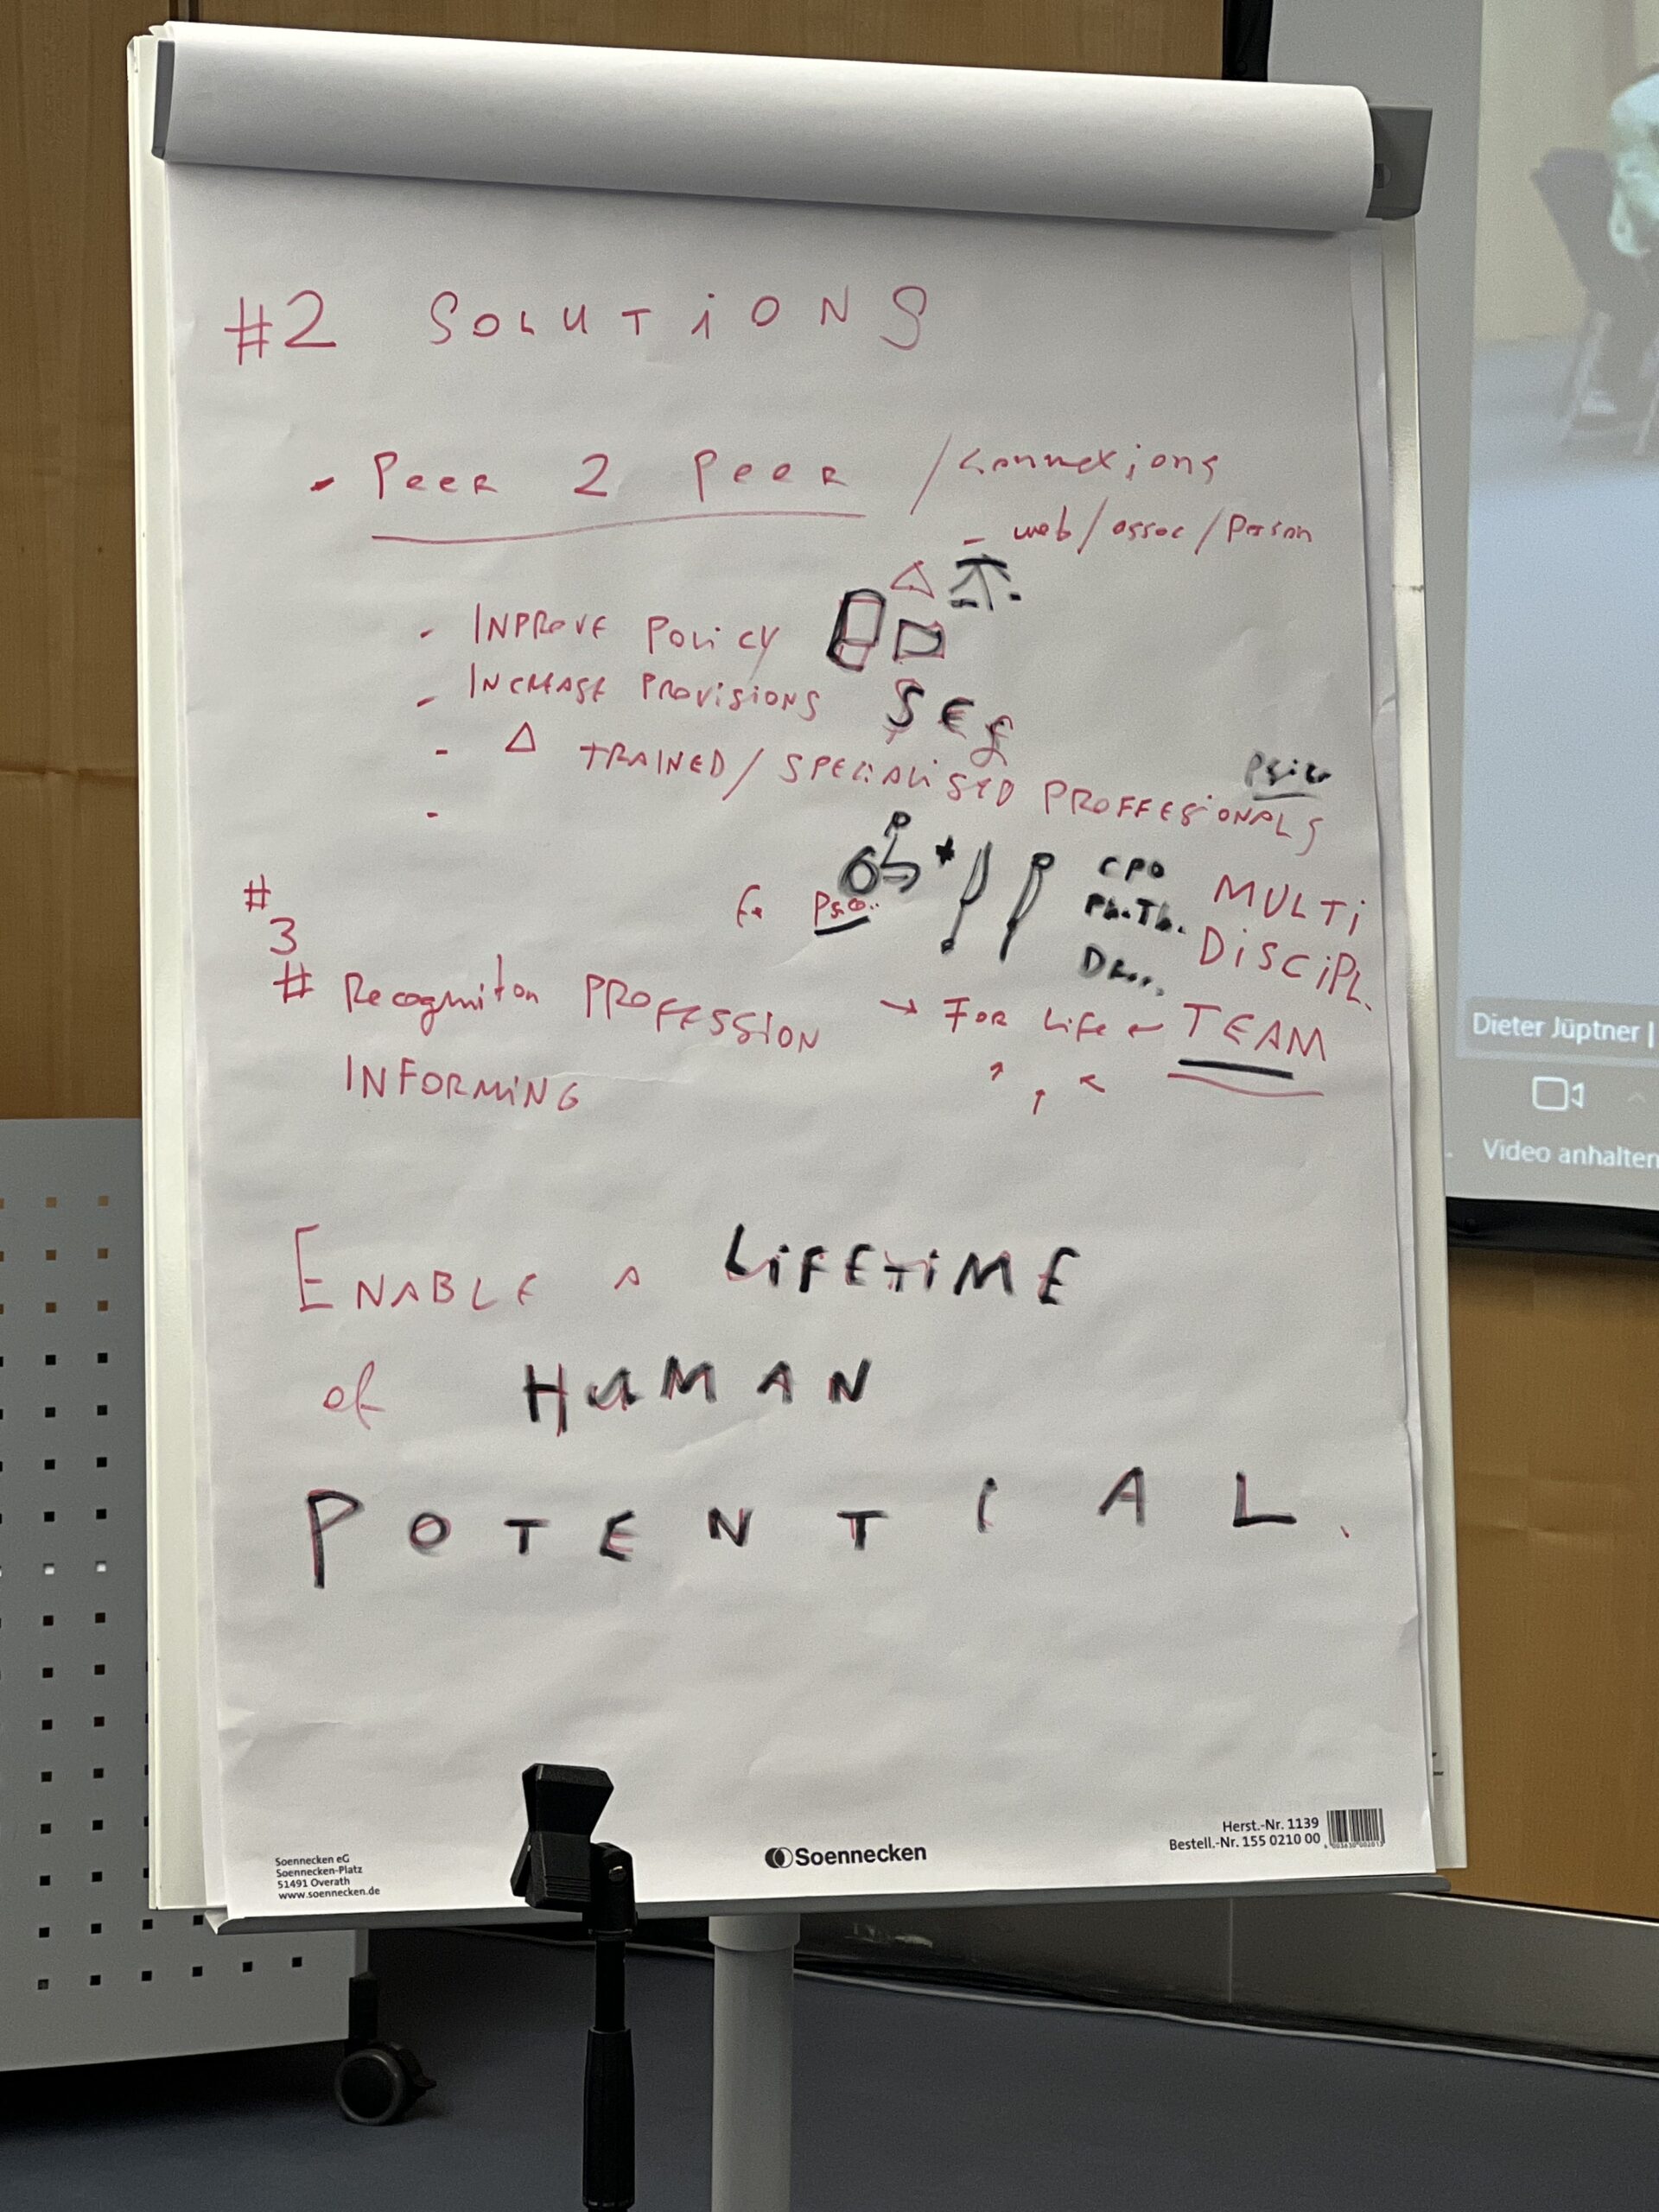 #2 SOLUTiONS
- Peer 2 Peer / Connexions
- web/assoc/Person
- INPROVE POLiCY
- INCREASE PROViSiONS $ € £
- Δ TRAINED/SPECiALiSED PROFFESiONALS
CPO
Ph.Th.
DR...
MULTi
DiSCiPL.
TEAM
#3
# Recogniton PROFESSION → FOR Life ←
INFORMiNG
ENABLE A LiFETiME
of HuMAN
POTENTIAL.
Soennecken eG
Soennecken-Platz
51491 Overath
www.soennecken.de
Soennecken
Herst.-Nr. 1139
Bestell.-Nr. 155 0210 00
Dieter Jüptner |
Video anhalten